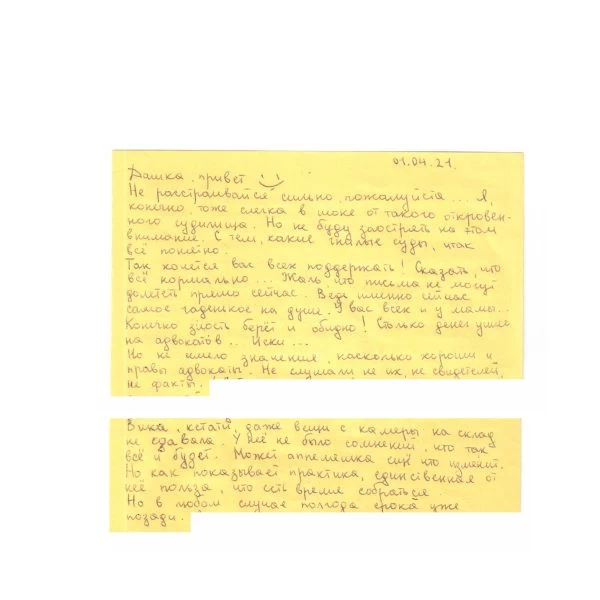 01.04.21.
Дашка, привет
Не расстраивайся сильно, пожалуйста... Я,
конечно, тоже слегка в шоке от такого откровен-
ного судилища. Но не буду заострять на этом
внимание. С тем, какие гнилые суды, итак
всё понятно.
Так хочется вас всех поддержать! Сказать, что
всё нормально... Жаль, что письма не могут
долететь прямо сейчас. Ведь именно сейчас
самое гаденькое на душе. У вас всех и у мамы...
Конечно злость берёт и обидно! Столько денег ушло
на адвокатов.. Иски...
Но не имело значения, насколько хороши и
правы адвокаты. Не слушали не их, не свидетелей,
не факты.
Вика, кстати, даже вещи с камеры на склад
не сдавала. У неё не было сомнений, что так
всё и будет. Может аппеляшка что изменит.
Но как показывает практика, единственная от
неё польза, что есть время собраться.
Но в любом случае полгода срока уже
позади.